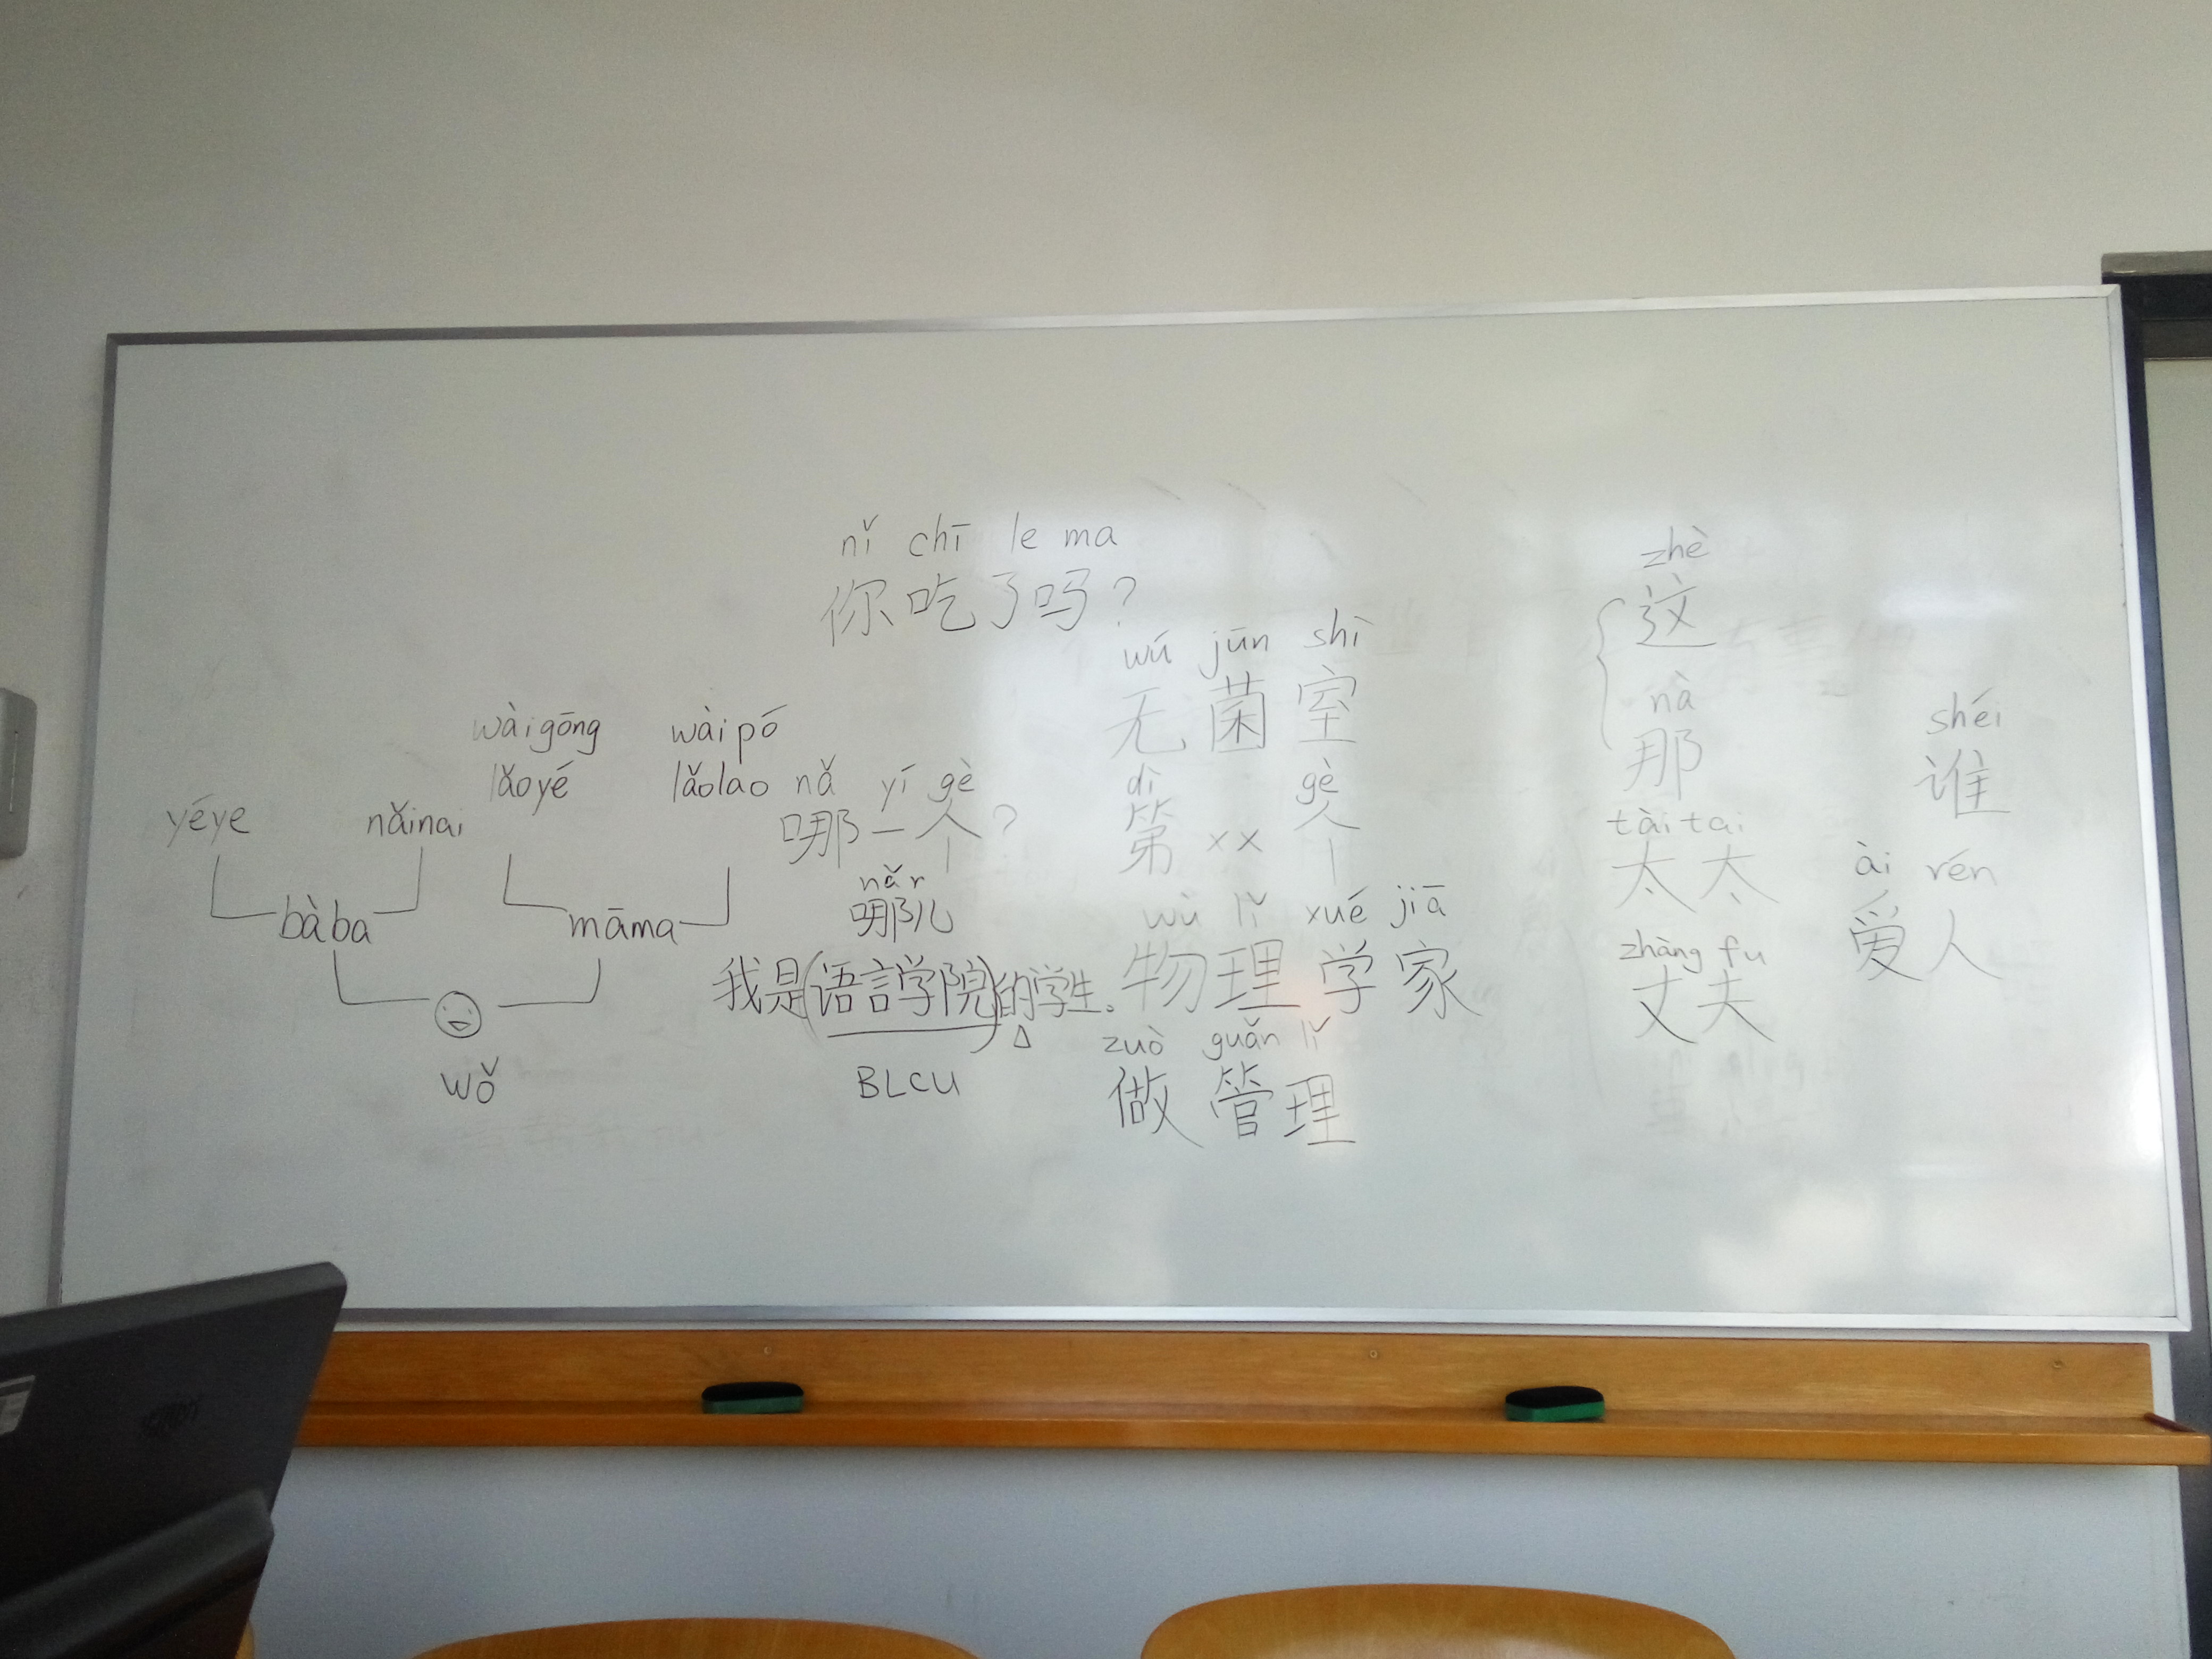 nǐ chī le ma
你吃了吗?
wàigōng wàipó
lǎoyé lǎolao
yéye nǎinai
bàba māma
wǒ
nǎ yí gè
哪一个?
nǎr
哪儿
我是(语言学院)的学生。
BLCU
wú jūn shì
无菌室
dì gè
第 xx 个
wù lǐ xué jiā
物理学家
zuò guǎn lǐ
做管理
zhè
这
nà
那
tài tai
太太
zhàng fu
丈夫
shéi
谁
ài rén
爱人